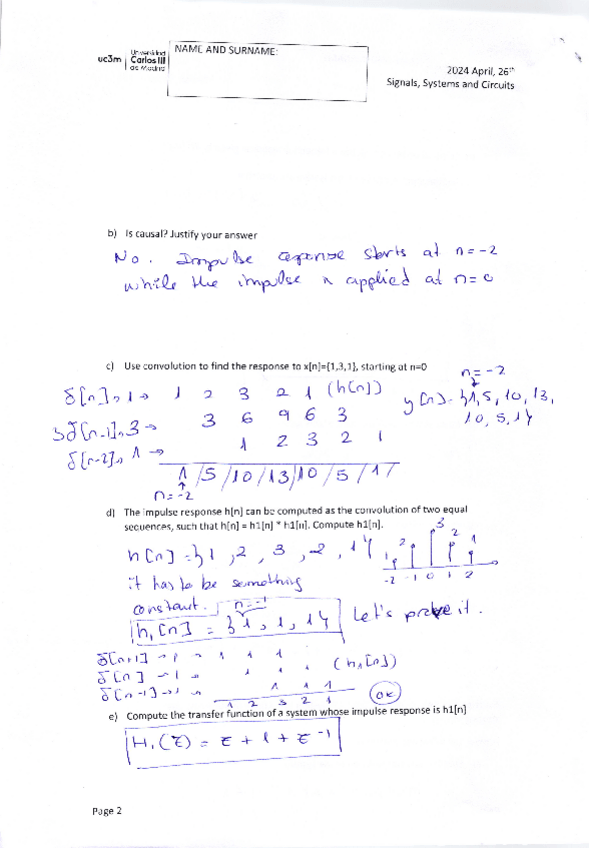 uc3m Universidad Carlos III de Madrid
NAME AND SURNAME:
2024 April, 26th
Signals, Systems and Circuits
b) Is causal? Justify your answer
No. Impulse response starts at n=-2
while the impulse is applied at n=0
c) Use convolution to find the response to x[n]={1,3,1}, starting at n=0
δ[n], 1 → 1 2 3 2 1 (h[n])
3δ[n-1], 3 → 3 6 9 6 3
δ[n-2], 1 → 1 2 3 2 1
1/5/10/13/10/5/1}
n=-2
n=-2
y[n]={1,5,10,13,
10,5,1}
d) The impulse response h[n] can be computed as the convolution of two equal
sequences, such that h[n] = h1[n] * h1[n]. Compute h1[n].
h[n]={1,2,3,2,1}
1 2 3 2 1
-2 -1 0 1 2
it has to be something
constant.
n=-1
h₁[n] = {1,1,1} Let's prove it.
δ[n+1] → 1 → 1 1 1
δ[n] → 1 → 1 1 1 (h₁[n])
δ[n-1] → 1 → 1 1 1
1 2 3 2 1 OK
e) Compute the transfer function of a system whose impulse response is h1[n]
H₁(z) = z + 1 + z⁻¹
Page 2